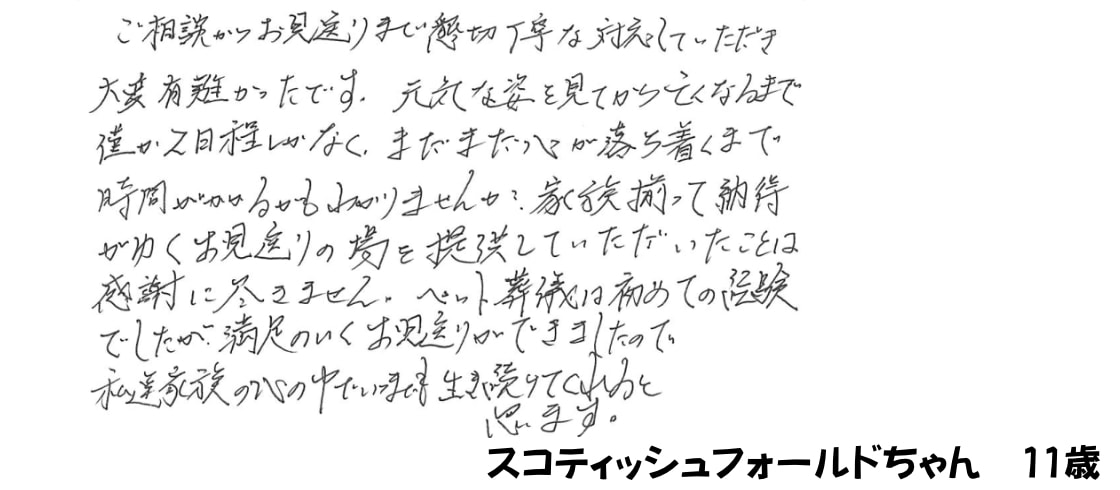 ご相談からお見送りまで懇切丁寧な対応していただき
大変有難かったです。元気な姿を見てから亡くなるまで
僅か2日程しかなく、まだまだ心が落ち着くまで
時間がかかるかもわかりませんが、家族揃って納得
がゆくお見送りの場を提供していただいたことは
感謝に尽きません。ペット葬儀は初めての経験
でしたが、満足のいくお見送りができましたので
私達家族の心の中でいつまでも生き続けてくれると
思います。
スコティッシュフォールドちゃん 11歳